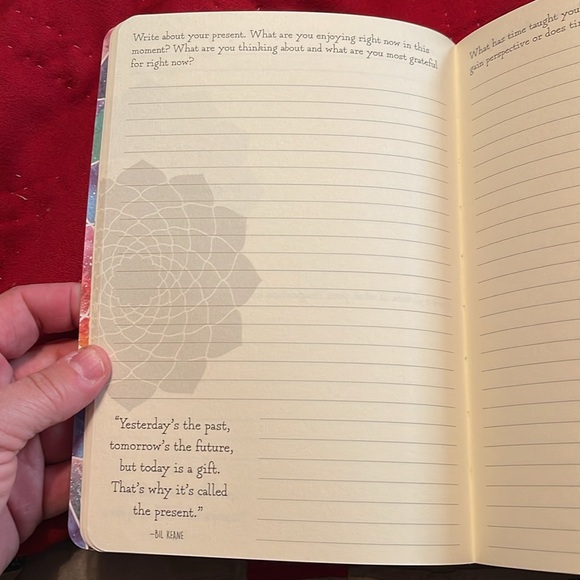 Write about your present. What are you enjoying right now in this
moment? What are you thinking about and what are you most grateful
for right now?
"Yesterday's the past,
tomorrow's the future,
but today is a gift.
That's why it's called
the present."
—BIL KEANE
What has time taught you
gain perspective or does